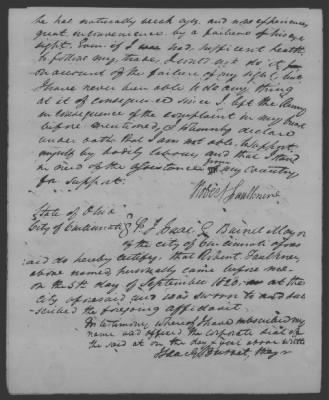 he has naturally weak eyes, and now experiences
great inconvenience by a failure of his eye
sight. Even if I was had sufficient health
to follow my trade, I could not do it for
on account of the failure of my sight, but
I have never been able to do any thing
at it of consequence since I left the Army
in consequence of the complaint in my breast
before mentioned, I solemnly declare
under oath that I am not able to support
myself by bodily labour, and that I stand
in need of the assistance from my Country
for support.
Robert Faulkner
State of Ohio
City of Cincinnati I, Isaac G Burnet Mayor
of the city of Cincinnati afores
aid do hereby certify, that Robert Faulkner
above named personally came before me
on the 5th day of September 1820, at the
City aforesaid and was sworn to and sub-
scribed the foregoing affidavit.
In testimony whereof I have subscribed my
name and affixed the corporate seal of
the said city on the day & year above written
Isaac G Burnet, Mayor